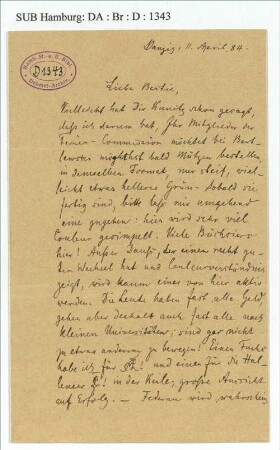 SUB Hamburg: DA : Br : D : 1343
D1343
Danzig, 11. April. 84.
Liebe Bertie,
Vielleicht hat Dir Kunitz schon gesagt,
daß ich darum bat, Ihr Mitglieder der
Ferien-Commission möchtet bei Bart-
möglichst bald Mützen bestellen,
in demselben Format, nur steif, viel-
leicht etwas helleres Grün. Sobald sie
fertig sind, bitte laß mir umgehend
eine zugehen: hier wird sehr viel
Couleur gerempelt. Viele
hier! Außer der einen recht gu-
ten Wechsel hat und Couleurverständnis
zeigt, wird kaum einer von hier aktiv
werden. Die Leute haben fast alle Geld,
gehen aber deshalb auch fast alle nach
kleinen Universitäten; sind gar nicht
zu etwas anderem zu bewegen! Einen Fuchs
habe ich für und einen für die Hal-
lenser in der Keile; große Aussicht
auf Erfolg. — wird wahrschein-